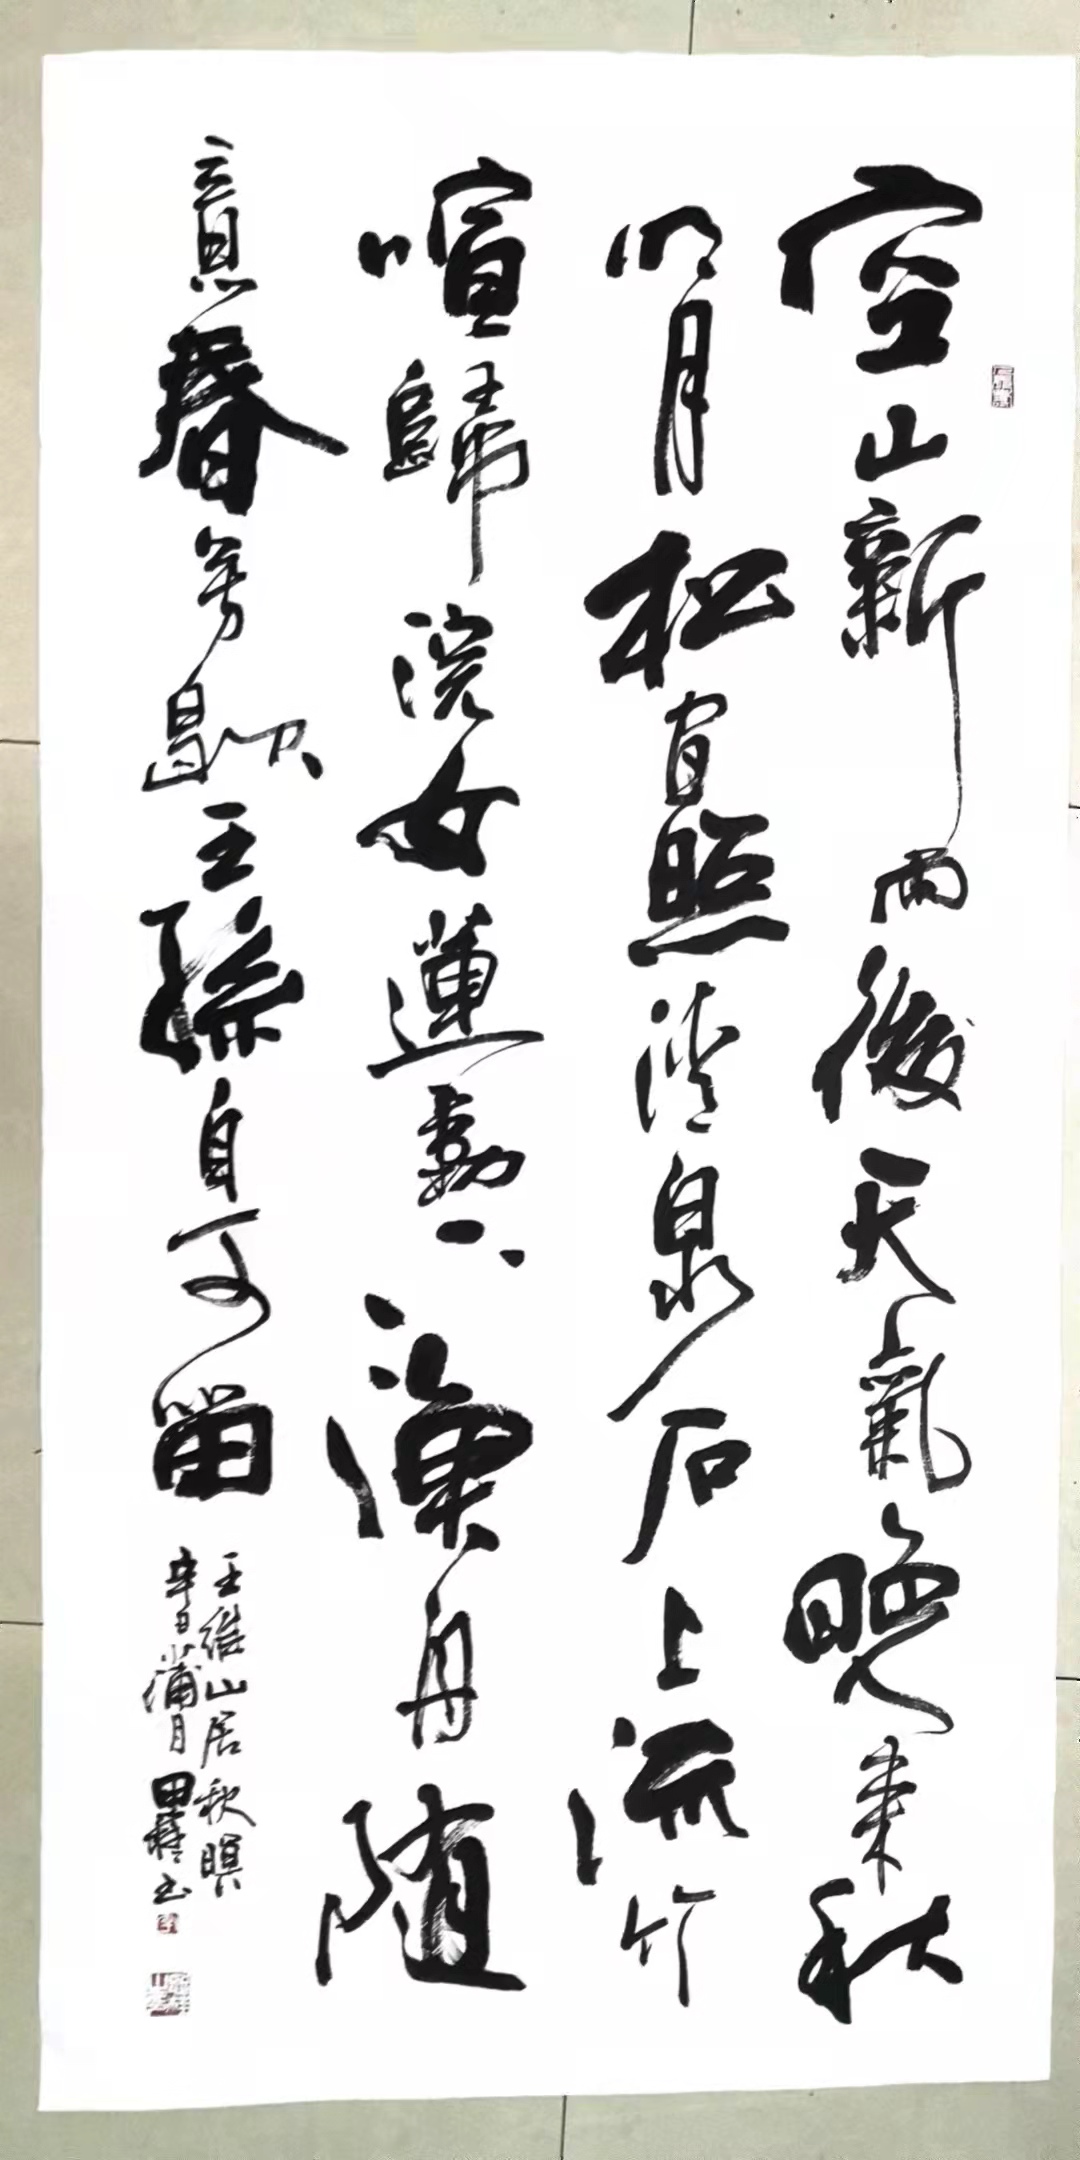 空山新雨後天氣晚来秋
明月松間照清泉石上流竹
喧歸浣女蓮動下漁舟随
意春芳歇王孫自可留
王維山居秋暝
辛丑蒲月田书